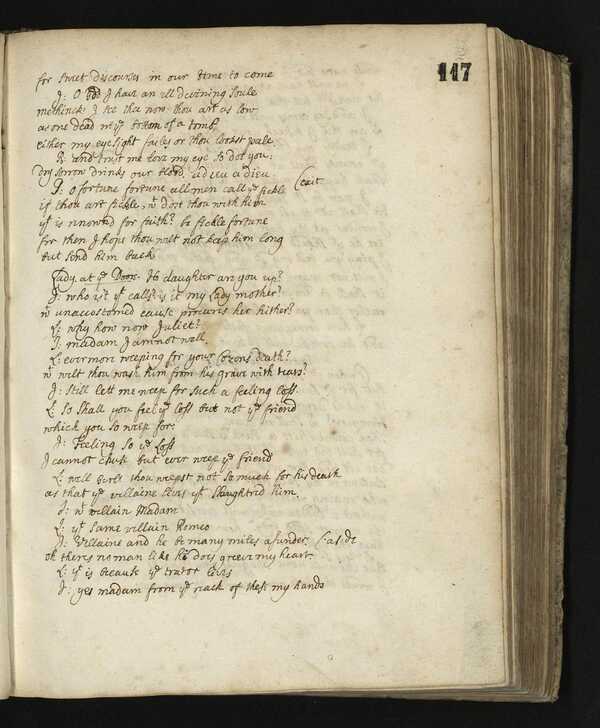 117
for sweet discourses in our time to come
J: O God I have an ill devining soule
methinks I see the now thou art as low
as one dead in yᵉ bottom of a tomb,
either my eye sight failes or thou lookst pale,
R: and trust me love my eye so do you,
Dry sorrow drinks our blood. adieu adieu
J: O fortune fortune all men call yᵉ fickle (exit
if thou art fickle, wᵗ dost thou with him
yᵗ is renownd for faith? be fickle fortune
for then I hope thou wilt not keep him long
but send him back
Lady at yᵉ Door. Ho daughter are you up?
J: who ist yᵗ calls? is it my Lady mother?
wᵗ unaccustomed cause procures her hither?
L: why how now Juliet?
J: madam I am not well
L: evermore weeping for your Cozens death?
wᵗ wilt thou wash him from his grave with tears?
J: Still lett me weep for such a feeling loss.
L: So shall you feel yᵉ loss but not yᵉ friend
which you so weep for.
J: Feeling so yᵉ loss
I cannot chuse but ever weep yᵉ friend
L: well Girle thou weepst not so much for his death
as that yᵉ villaine lives yᵗ slaughtred him.
J: wᵗ villain Madam
L: yᵗ same villain Romeo
J: Villaine and he be many miles asunder. (aside
oh theres no man like he does greeve my heart.
L: yᵗ is because yᵉ trator lives
J: yes madam from yᵉ reach of these my hands